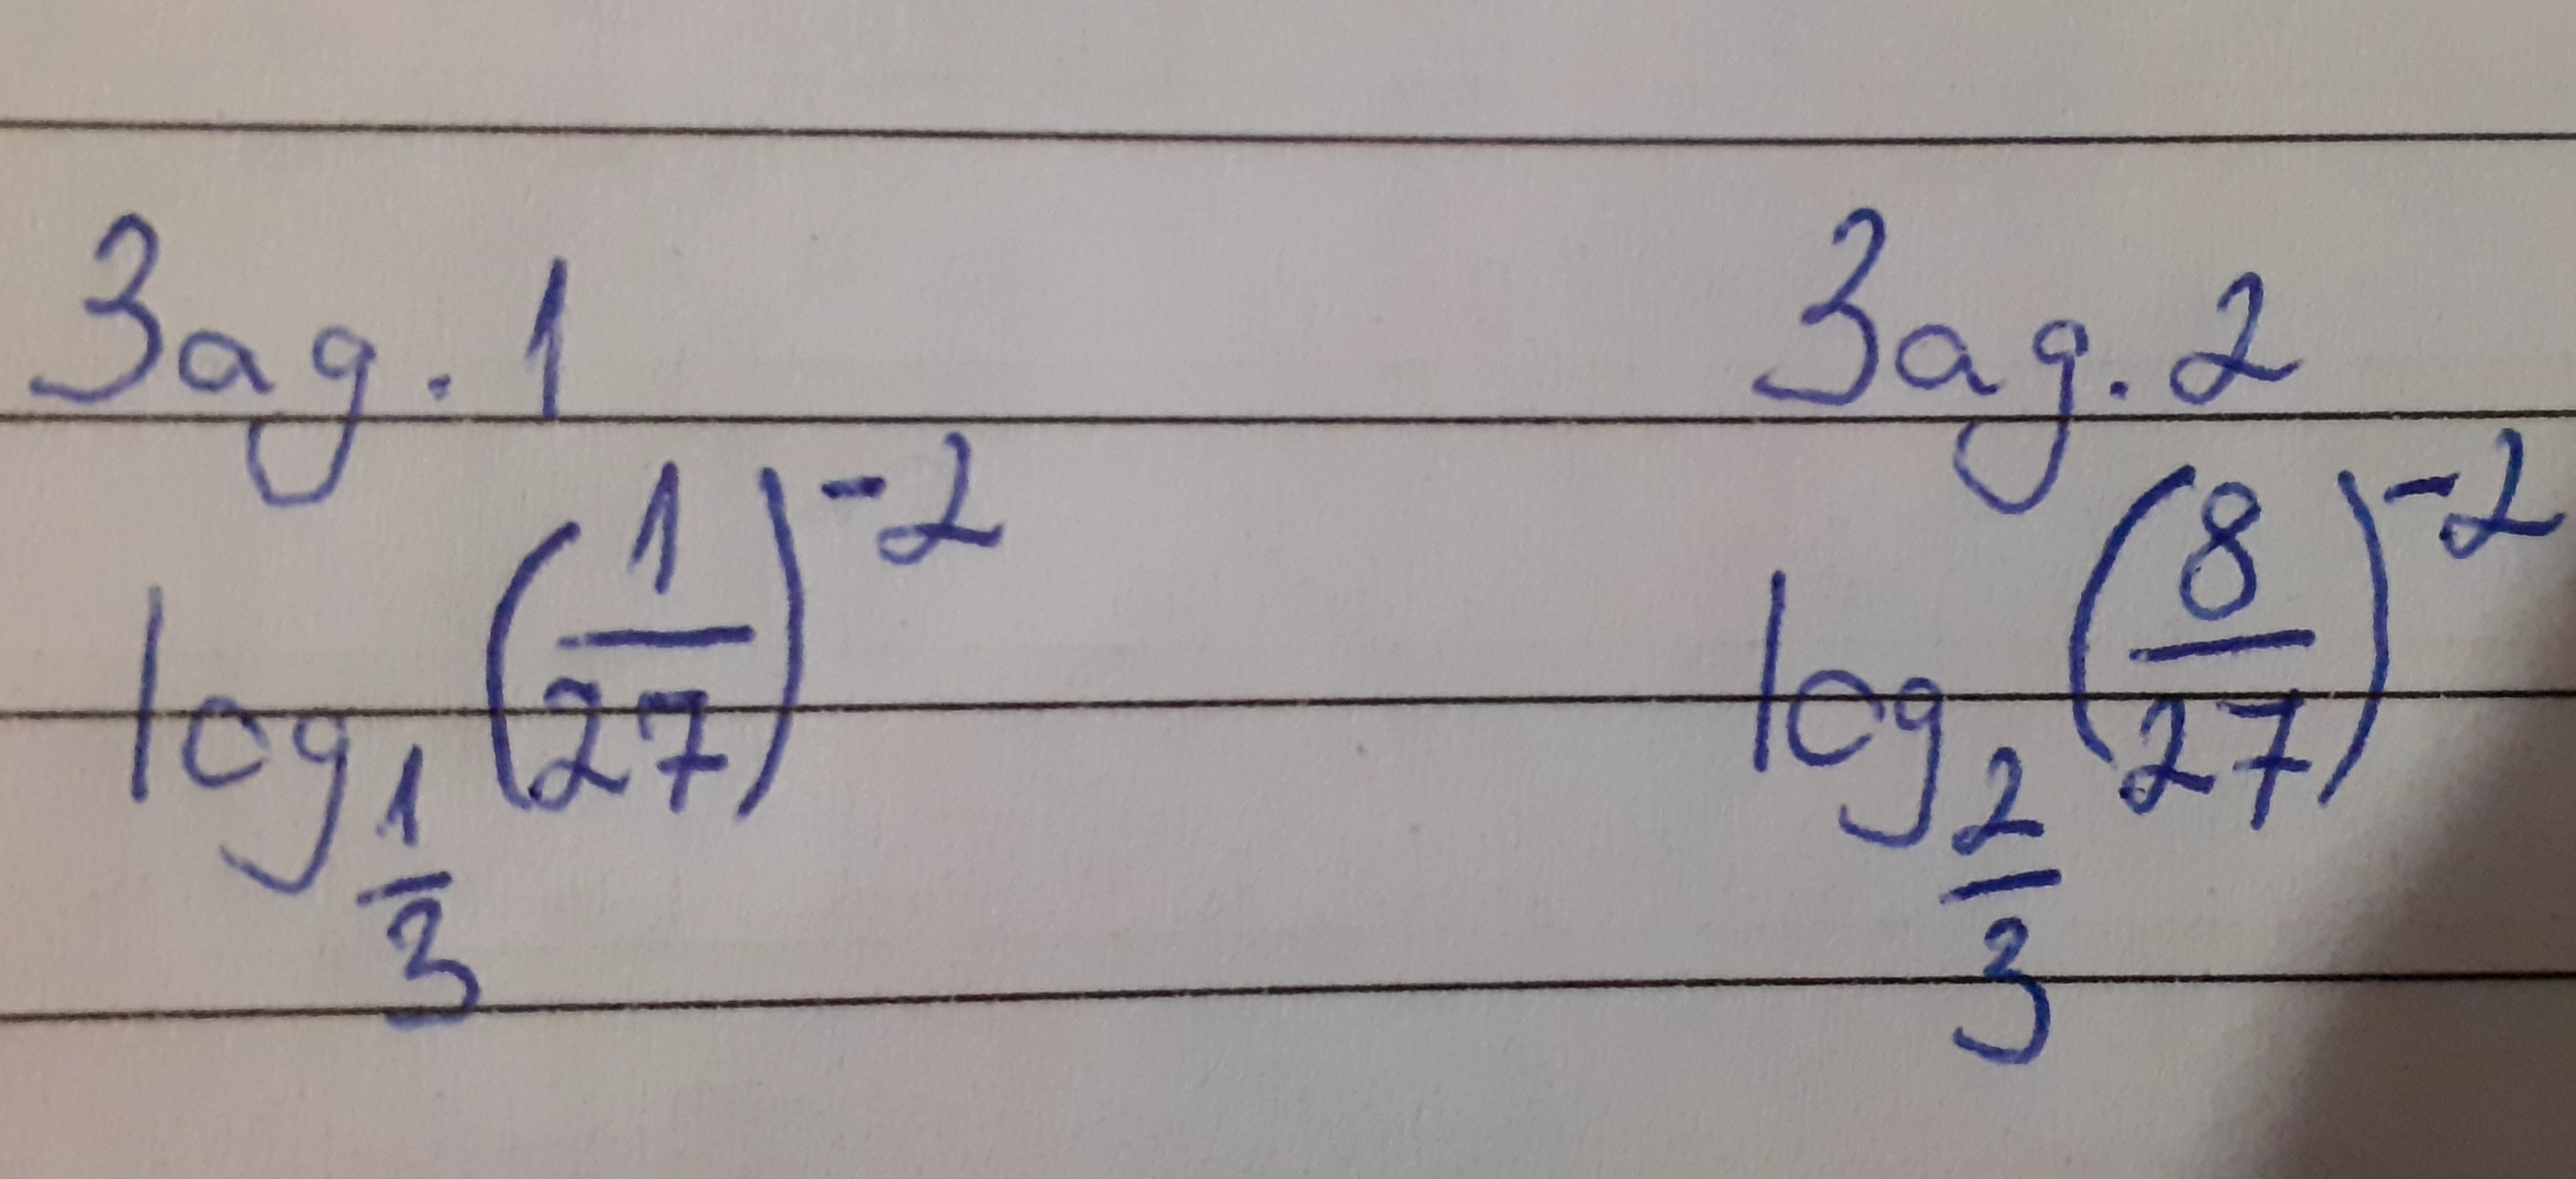 Заg. 1 Заg. 2
log_{\frac{1}{3}} \left(\frac{1}{27}\right)^{-2} log_{\frac{2}{3}} \left(\frac{8}{27}\right)^{-2}